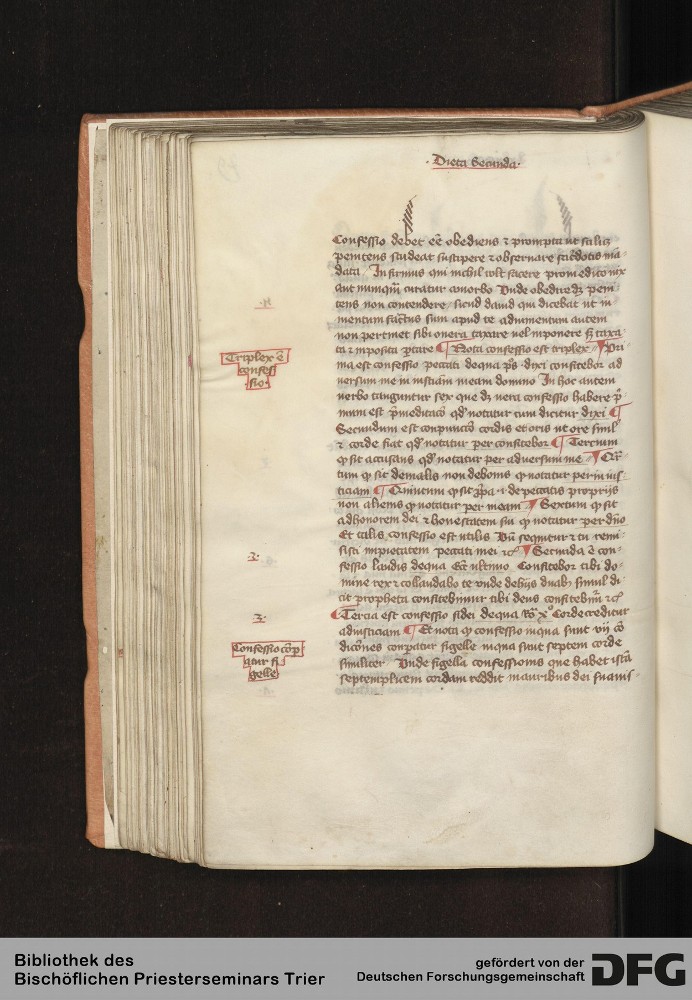 · Dieta Secunda ·
Confessio debet eẽ obediens ⁊ prompta ut scilicz
penitens studeat suscipere ⁊ obseruare sacẽdotis mã
data Infirmus qui nichil wlt facere pro medico vix
aut nunqȝ curatur a morbo Vnde obedire dȝ peni
tens non contendere sicud dauid qui dicebat ut iu
mentum factus sum apud te ad iumentum autem
non pertinet sibi onera taxare vel imponere sȝ taxa
ta ⁊ imposita portare ¶ Nota confessio est triplex ¶ Pri
ma est confessio peccati de qua ps̃ dixi confitebor ad
uersum me iniusticiam meam domino In hoc autem
verbo tanguntur sex que dȝ vera confessio habere p̃
mum est p̃meditacõ qd̕ notatur cum dicitur dixi ¶
Secundum est conpunctio cordis et oris ut ore simil̕
⁊ corde fiat qd̕ notatur per confitebor ¶ Tercium
ꝙ sit accusans qd̕ notatur per aduersum me ¶ Qr̃
tum ꝙ sit de malis non de bonis ꝙ notatur per inius
ticiam ¶ Quintum ꝙ sit ꝓpa · i · de peccatis proprijs
non alienis ꝙ notatur per meam ¶ Sextum ꝙ sit
ad honorem dei ⁊ honestatem sui ꝙ notatur per dño
Et talis confessio est utilis Vñ sequitur et tu remi
sisti impietatem peccati mei ⁊c̃ ¶ Secunda ẽ con
fessio laudis de qua Ecc̃ ultimo Confitebor tibi do
mine rex ⁊ collaudabo te vnde de hijs duabȝ simul di
cit propheta confitebimur tibi deus confitebim̃ ⁊c̃
¶ Tercia est confessio fidei de qua Ro̊ xº Corde creditur
ad iusticiam ¶ Et nota ꝙ confessio in qua sunt vij cõ
dicões conparatur figelle in qua sunt septem corde
similiter Vnde figella confessionis que habet istã
septemplicem cordam reddit in auribus dei suauis
Triplex ẽ
confes
sio
·2·
·3·
Confessio cõp
atur fi
gelle
Bibliothek des
Bischöflichen Priesterseminars Trier
gefördert von der
Deutschen Forschungsgemeinschaft
DFG